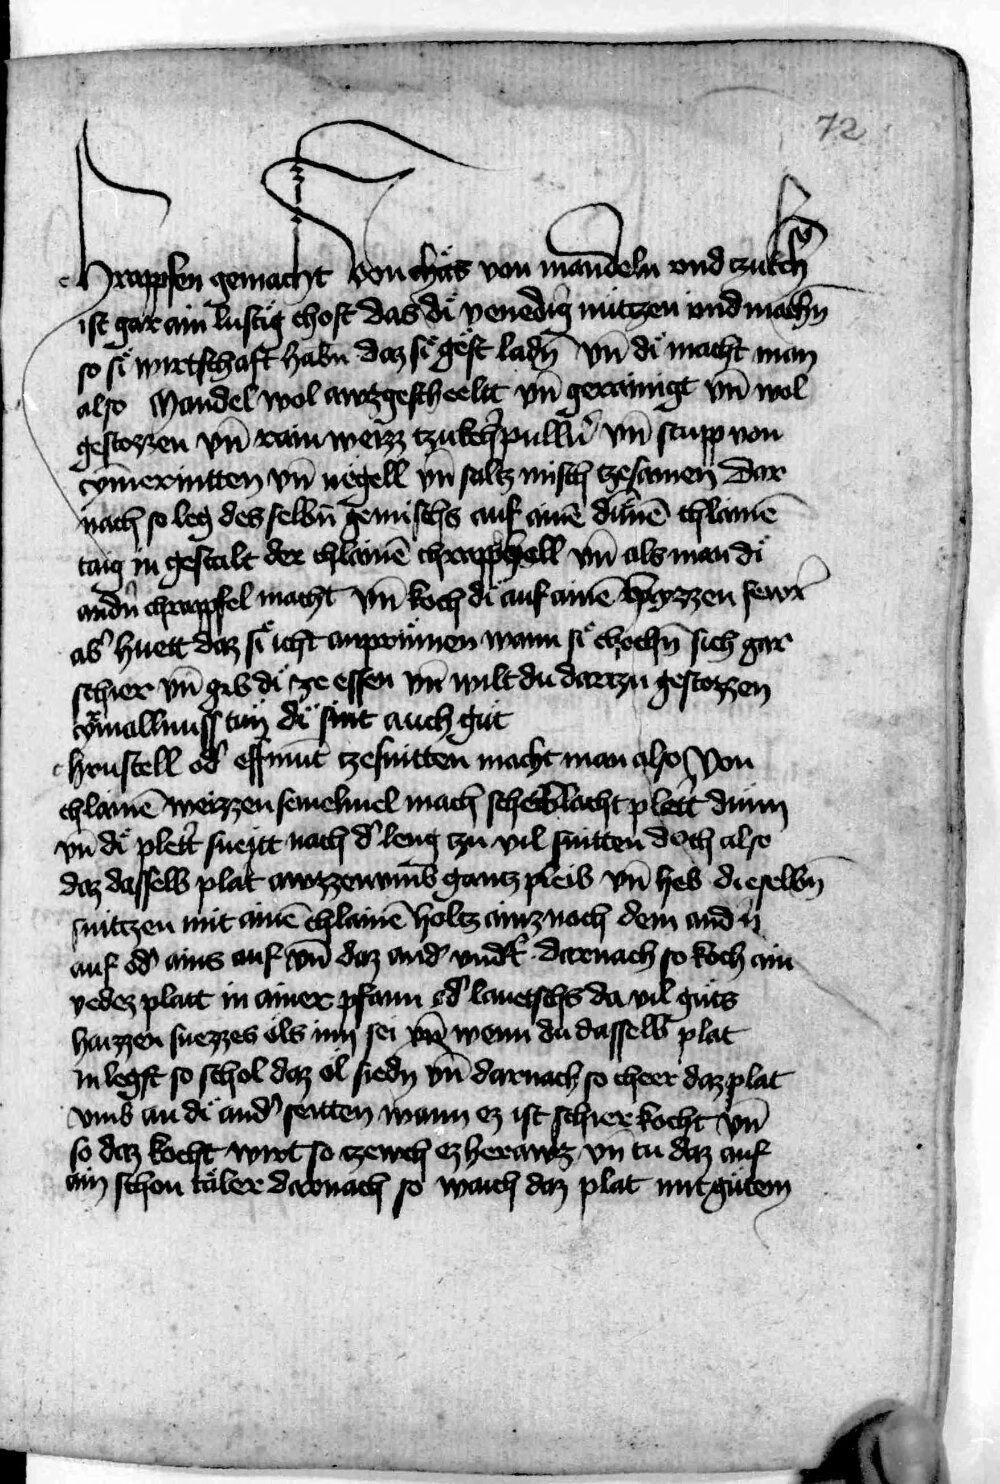 72
Chrapfen gemacht von chäs von mandeln vnd tzukch̄
ist gar ain lustig chost das di venedig̉ nützen vnd machn̄
so si wirtschaft habn̄ daz si gest ladn̄ vn̄ di macht man
also Mandel wol awzgescheelt vn̄ gerainigt vn̄ wol
gestozzen vn̄ rain weizz tzukch̉pulluͦ vn̄ stupp von
cymerintten vn̄ negell vn̄ saltz misch tzesamen Dar
nach so leg des selbn̄ gemischs auf ainē dünnē chlainē
taig in gestalt der chlainē chrapphell vn̄ als man di
andn̉ chrapfel macht vn̄ koch di auf ainē hayzzen fewr̉
ab̉ huett daz si icht anprinnen wann si chochn̄ sich gar
schier vn̄ gib di ze essen vn̄ wilt du dartzu gestozzen
cymallnuss tun di sint auch gut
Chrustell od̉ essmut tzesnitten macht man also Von
chlainē weizzen semelmel mach scheiblacht plett̉ dünn
vn̄ di plett̉ sneitt nach d̉ leng tzu vil snitten doch also
daz dasselb plat awzzenumb gantz pleib vn̄ heb dieselbn̄
snitzen mit ainē chlainē holtz ainz nach dem andn̉
auf od̉ ains auf vn̄ daz and̉ vnd̉t darnach so koch ain
yedez platt in ainer pfann od̉ lauetschs da vil guts
haizzen suezzes öls inn sei vn̄ wenn du dasselb plat
in legst so schol daz öl siedn̄ vn̄ darnach so cheer daz plat
vmb an di and̉ seitten wann ez ist schier kocht vn̄
so daz kocht wirt so tzewch ez herawz vn̄ tu daz auf
ain schon täler darnach so waich daz plat mit gutem